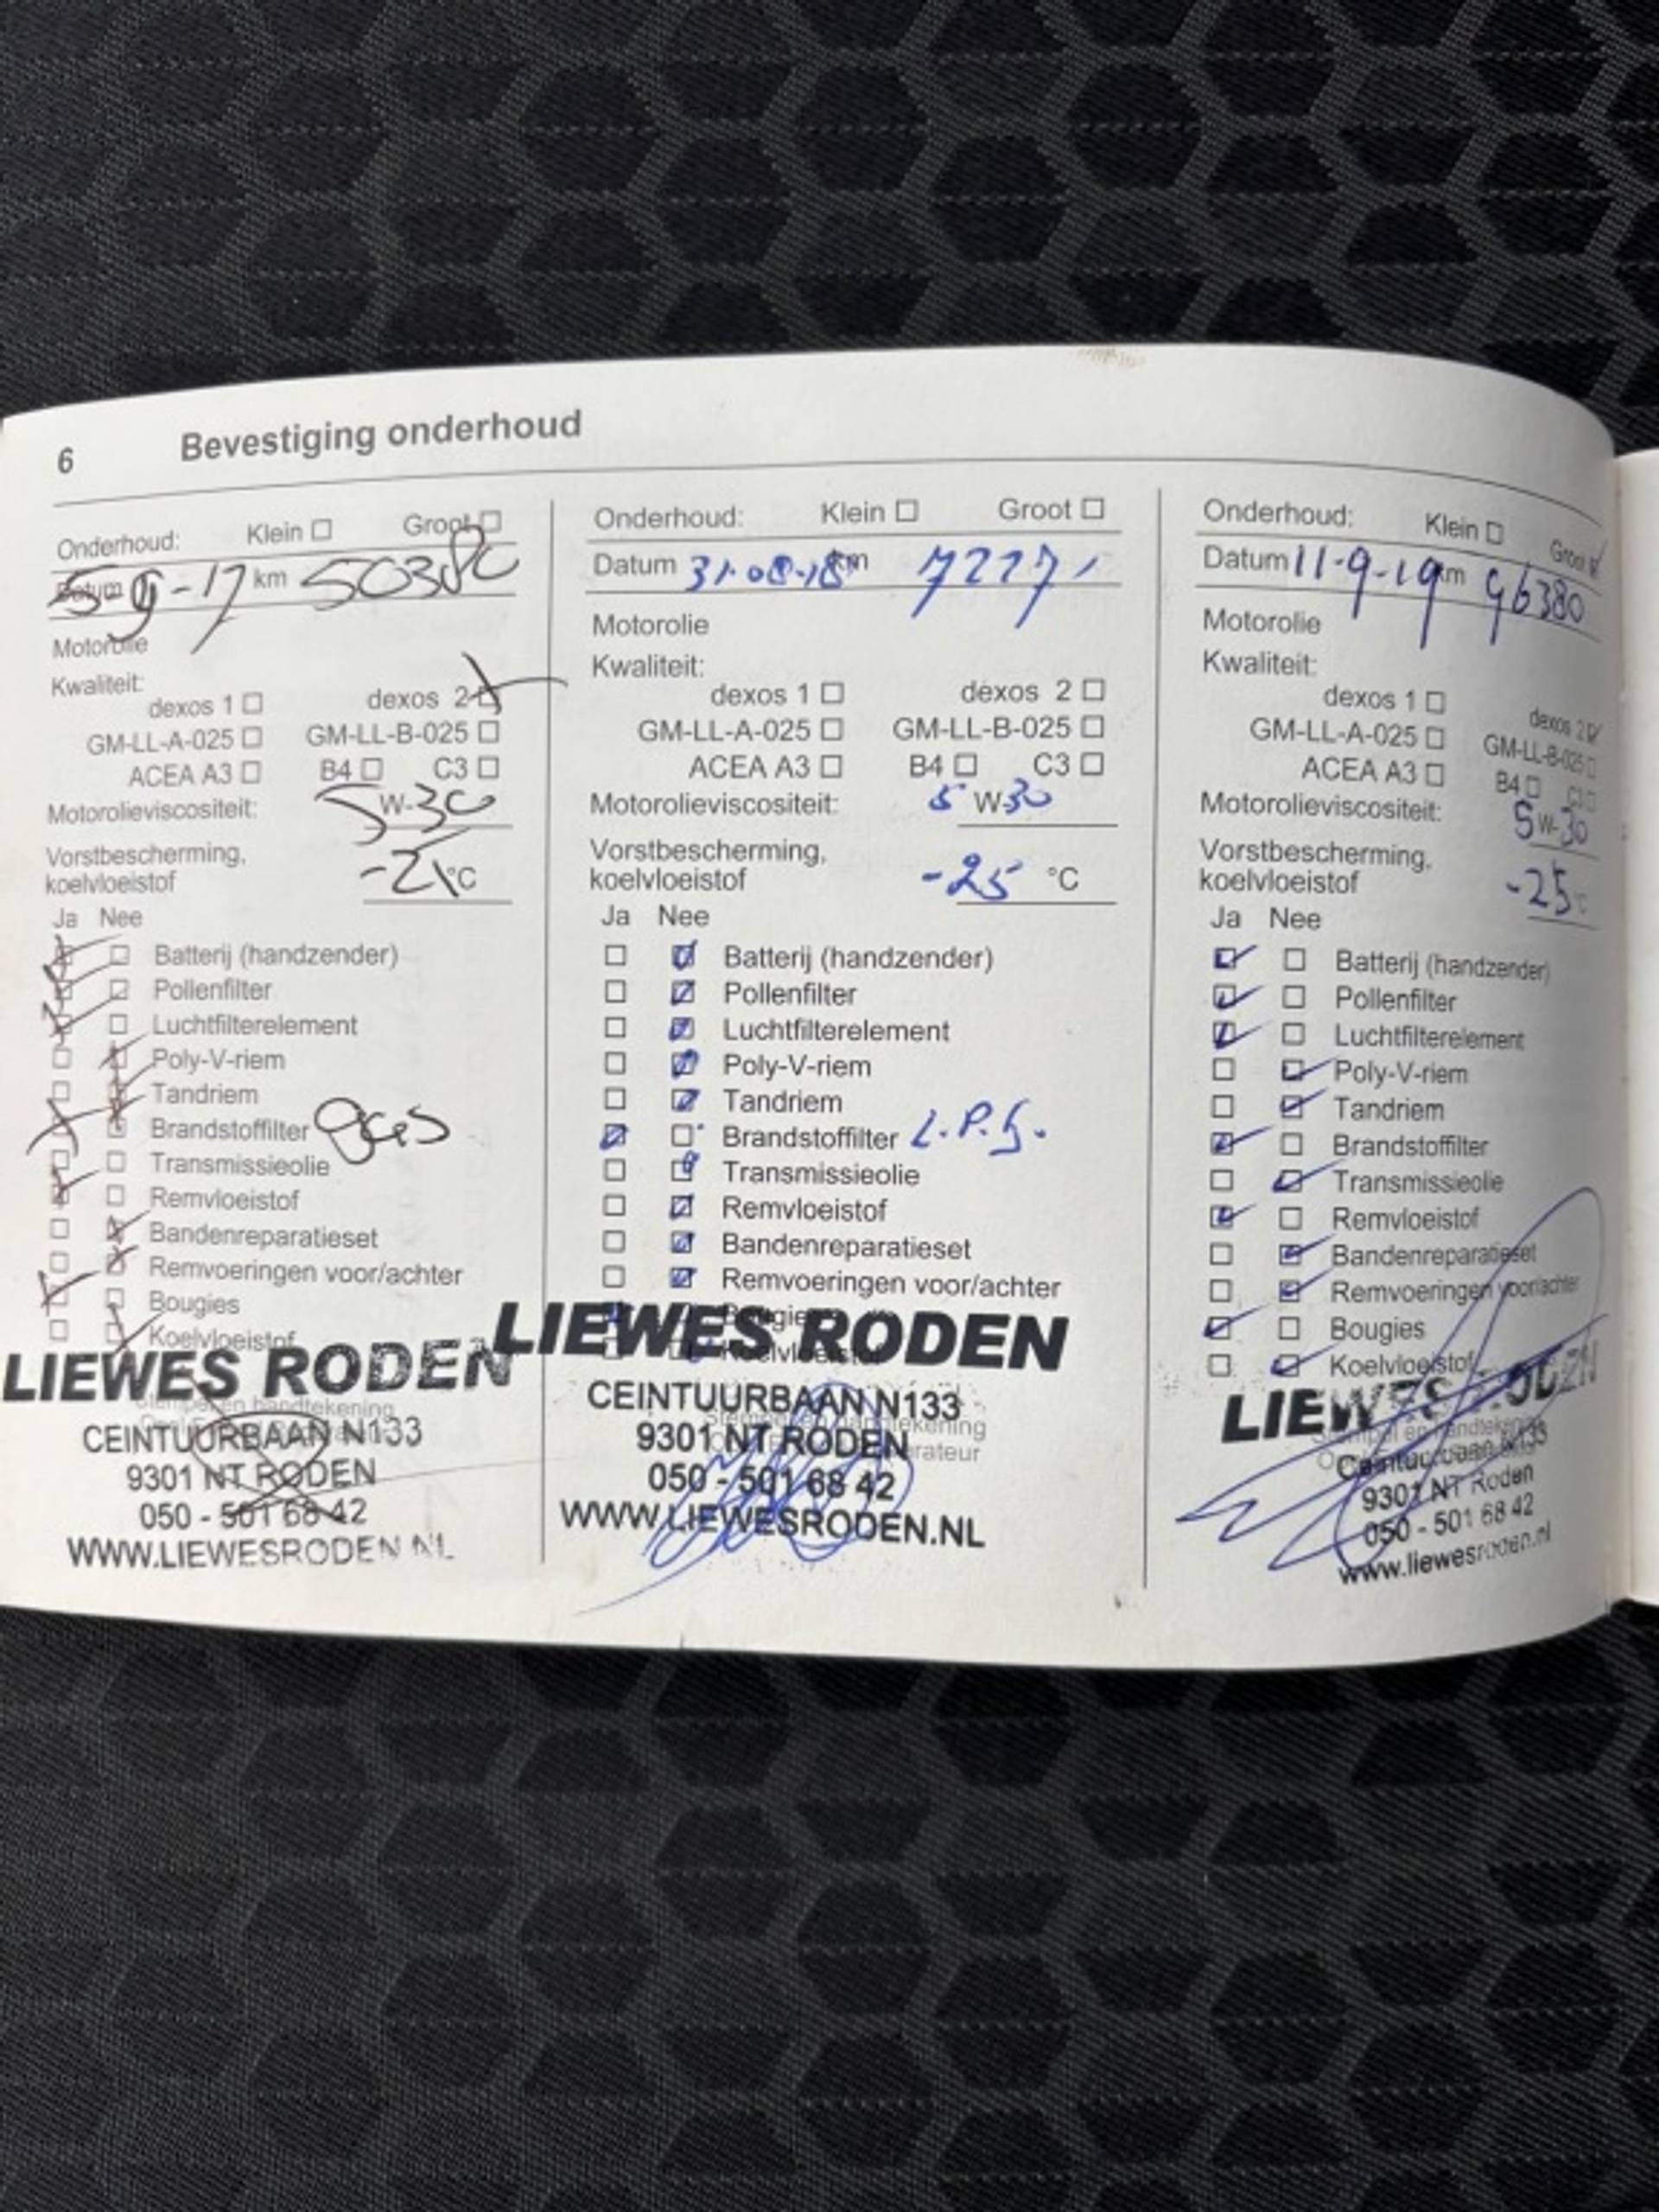 6 Bevestiging onderhoud
Onderhoud: Klein ☐ Groot ☐
Datum 5-9-17 km 50380
Motorolie
Kwaliteit:
dexos 1 ☐ dexos 2 ☒
GM-LL-A-025 ☐ GM-LL-B-025 ☐
ACEA A3 ☐ B4 ☐ C3 ☐
Motorolieviscositeit: 5 W-30
Vorstbescherming,
koelvloeistof -21 °C
Ja Nee
Batterij (handzender)
Pollenfilter
Luchtfilterelement
Poly-V-riem
Tandriem
Brandstoffilter gas
Transmissieolie
Remvloeistof
Bandenreparatieset
Remvoeringen voor/achter
Bougies
Koelvloeistof
LIEWES RODEN
Stempel en handtekening
CEINTUURBAAN N133
9301 NT RODEN
050 - 501 68 42
WWW.LIEWESRODEN.NL
Onderhoud: Klein ☐ Groot ☐
Datum 31-08-18 km 72271
Motorolie
Kwaliteit:
dexos 1 ☐ dexos 2 ☐
GM-LL-A-025 ☐ GM-LL-B-025 ☐
ACEA A3 ☐ B4 ☐ C3 ☐
Motorolieviscositeit: 5 W-30
Vorstbescherming,
koelvloeistof -25 °C
Ja Nee
Batterij (handzender)
Pollenfilter
Luchtfilterelement
Poly-V-riem
Tandriem
Brandstoffilter L.P.G.
Transmissieolie
Remvloeistof
Bandenreparatieset
Remvoeringen voor/achter
Bougies
Koelvloeistof
LIEWES RODEN
CEINTUURBAAN N133
Stempel en handtekening
9301 NT RODEN
050 - 501 68 42
WWW.LIEWESRODEN.NL
Onderhoud: Klein ☐ Groot ☑
Datum 11-9-19 km 96380
Motorolie
Kwaliteit:
dexos 1 ☐ dexos 2 ☑
GM-LL-A-025 ☐ GM-LL-B-025 ☐
ACEA A3 ☐ B4 ☐ C3 ☐
Motorolieviscositeit: 5 W-30
Vorstbescherming,
koelvloeistof -25 °C
Ja Nee
Batterij (handzender)
Pollenfilter
Luchtfilterelement
Poly-V-riem
Tandriem
Brandstoffilter
Transmissieolie
Remvloeistof
Bandenreparatieset
Remvoeringen voor/achter
Bougies
Koelvloeistof
LIEWES RODEN
Stempel en handtekening
Ceintuurbaan N133
9301 NT Roden
050 - 501 68 42
www.liewesroden.nl